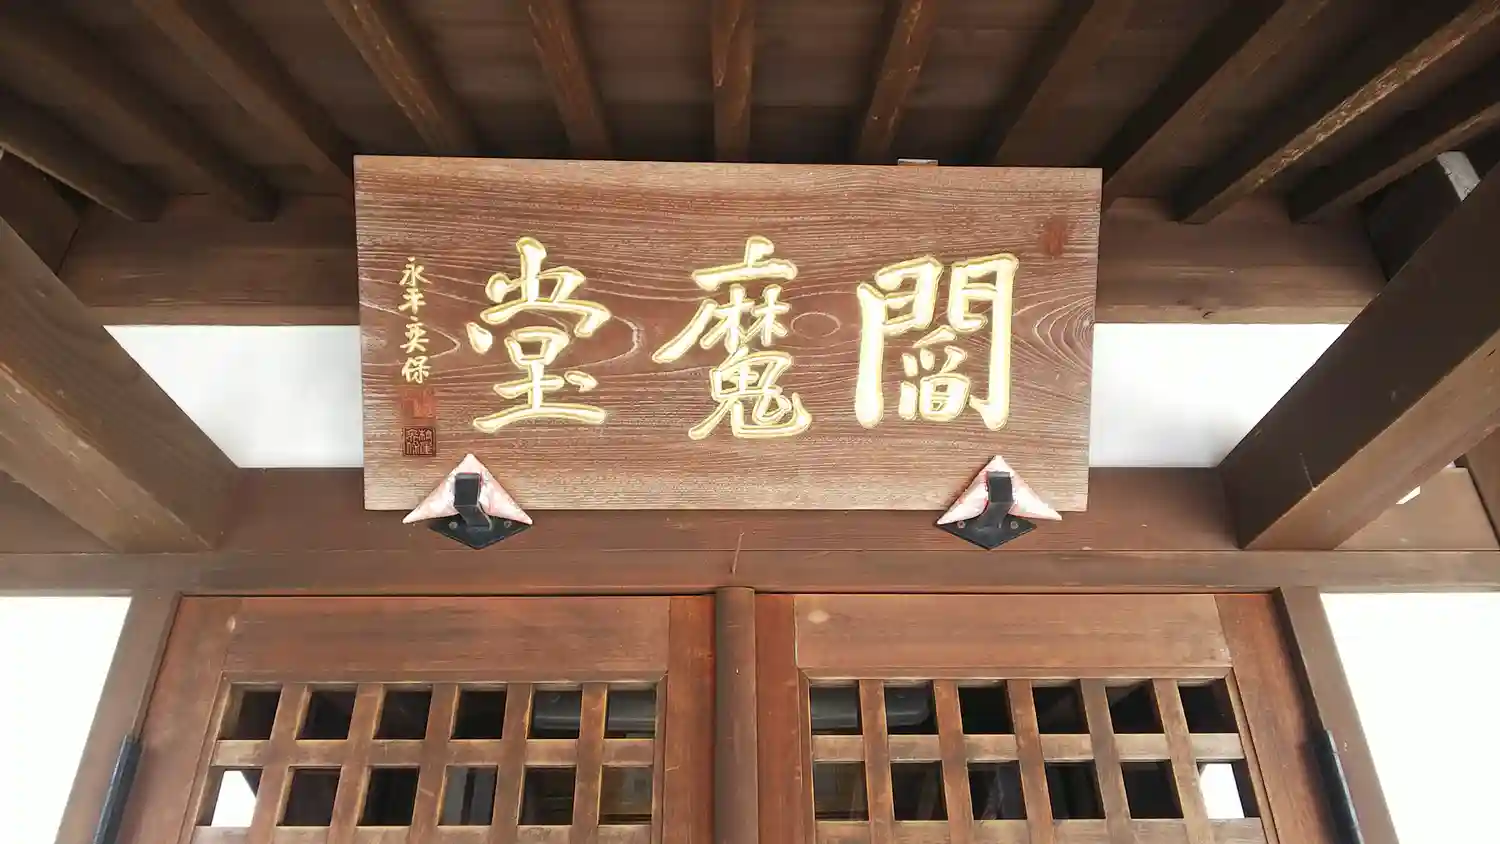 閻魔堂
永平英保